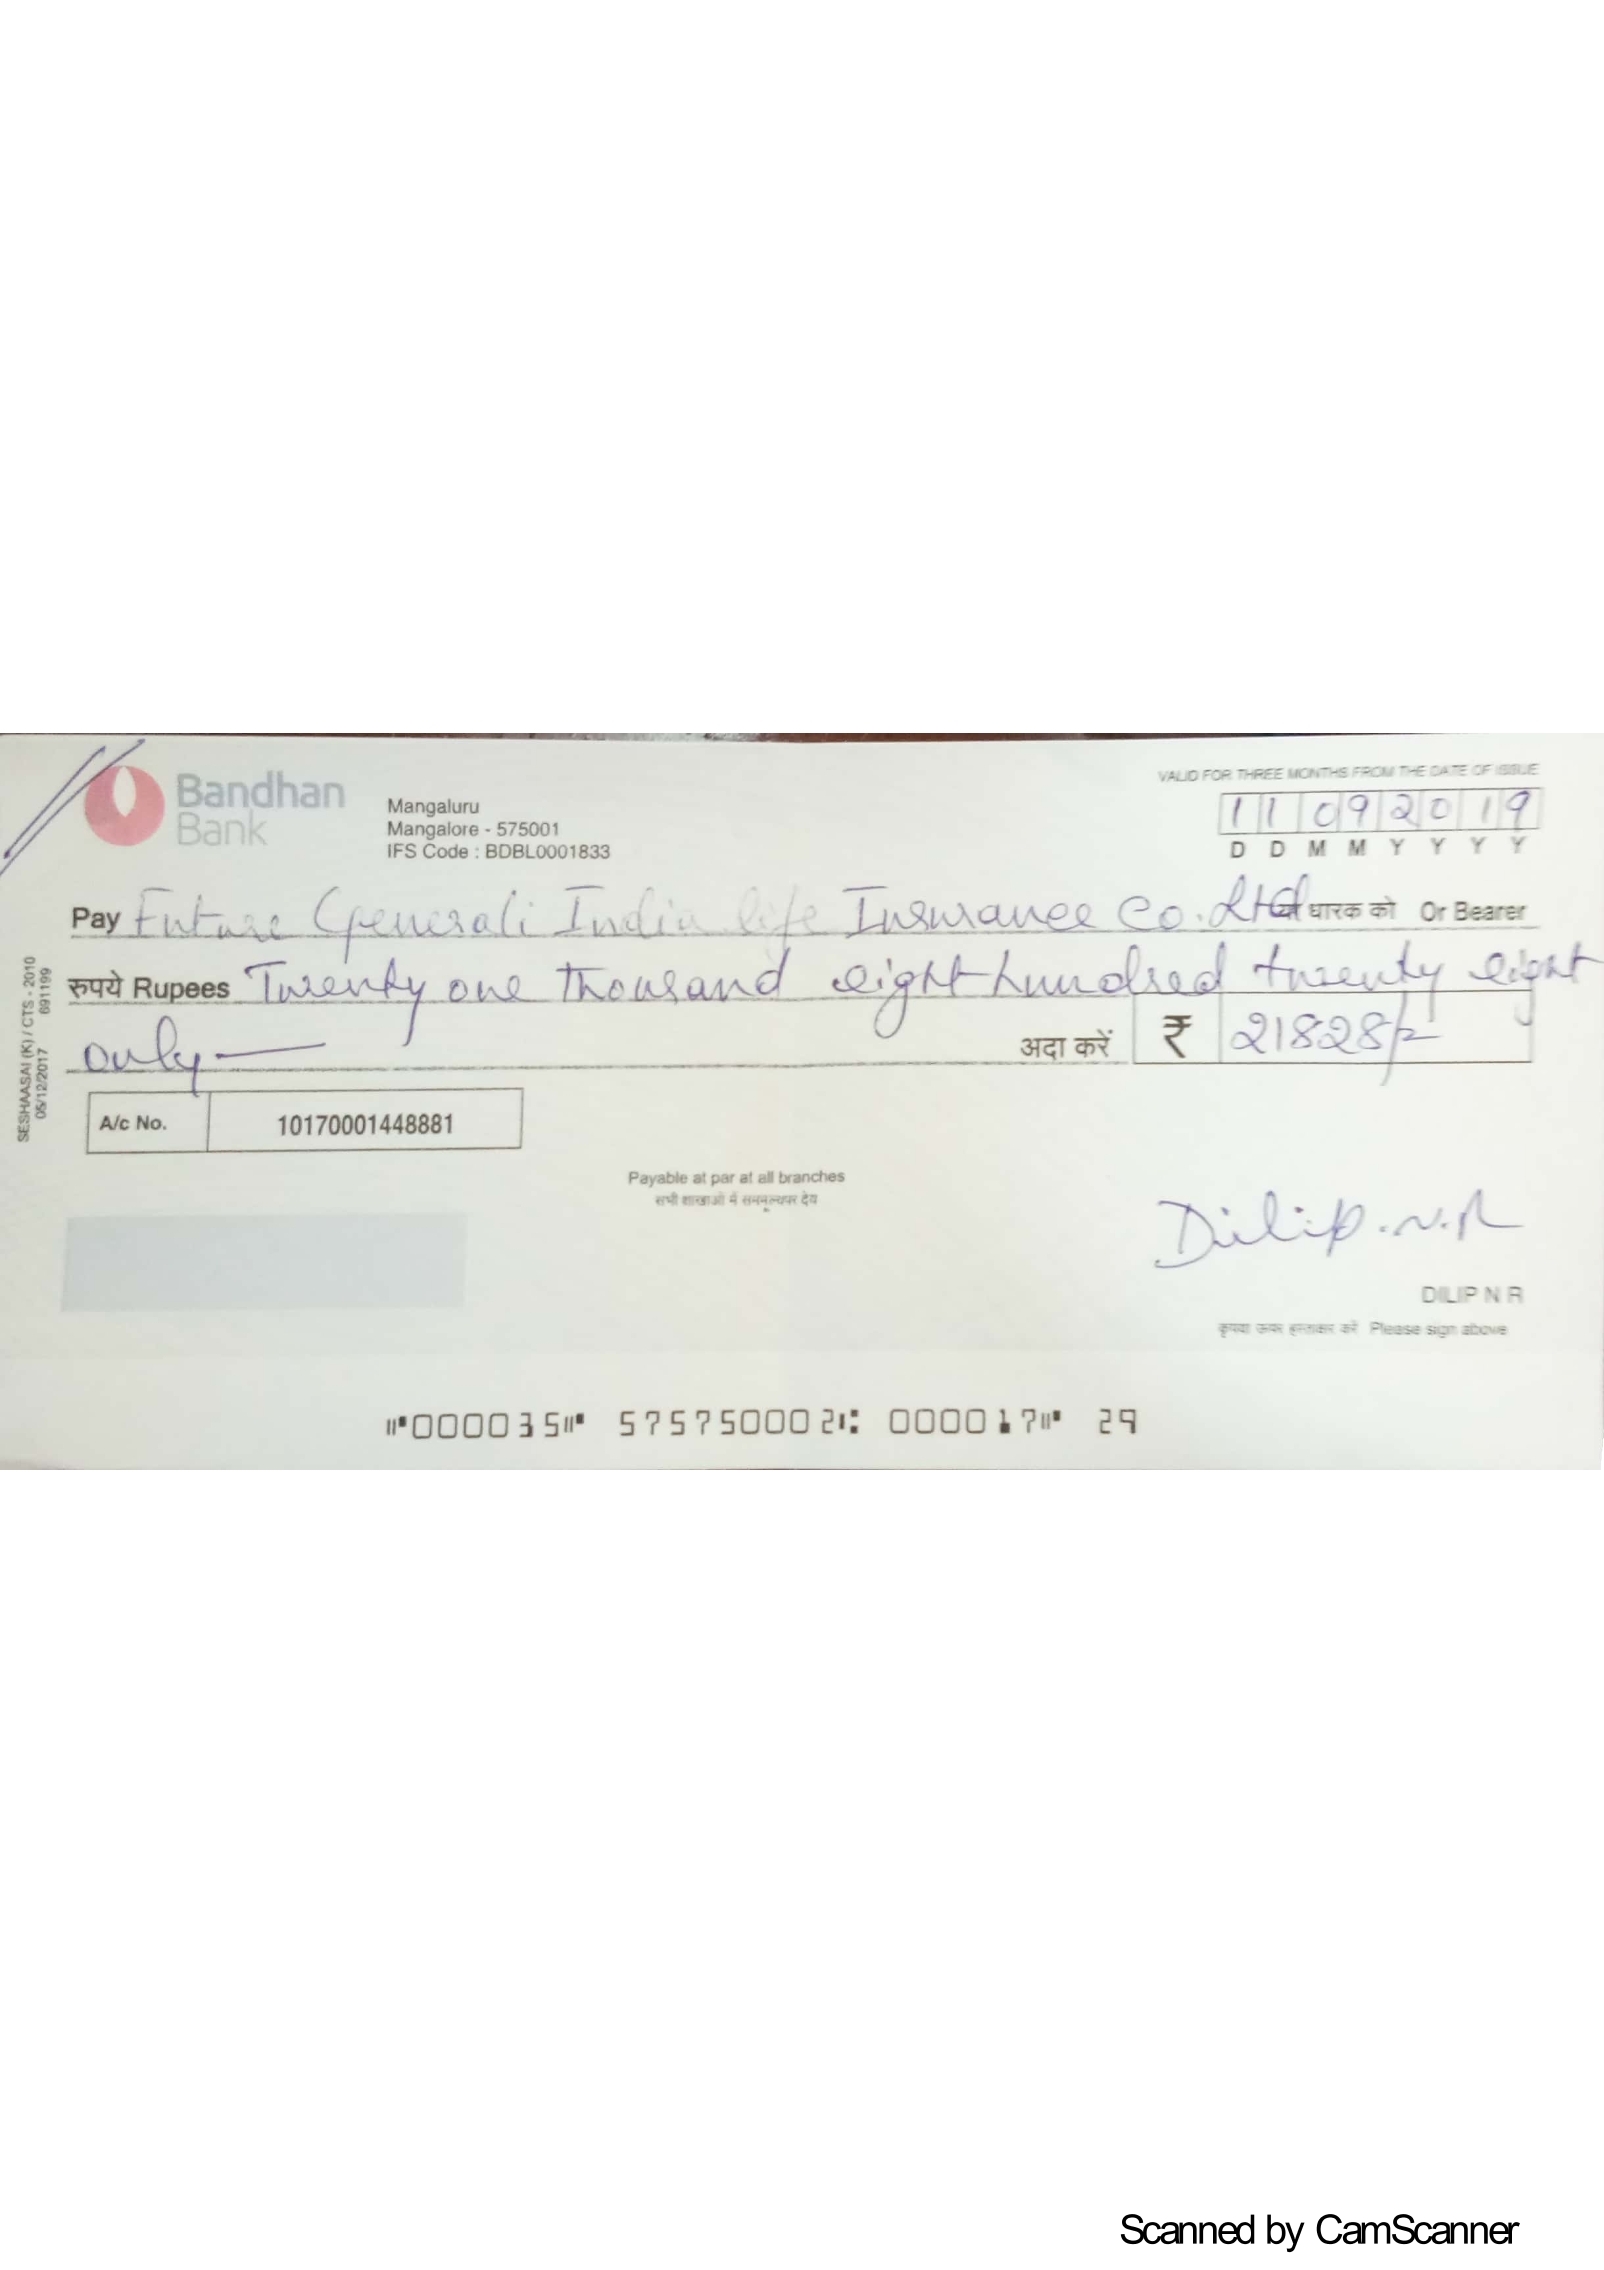 Bandhan
Bank
Mangaluru
Mangalore - 575001
IFS Code : BDBL0001833
VALID FOR THREE MONTHS FROM THE DATE OF ISSUE
11092019
D D M M Y Y Y Y
Pay Future Generali India life Insurance Co. Ltd या धारक को Or Bearer
रुपये Rupees Twenty one thousand eight hundred twenty eight
only
अदा करें ₹ 21828/-
A/c No. 10170001448881
SESHAASAI (K) / CTS - 2010
05/12/2017 691199
Payable at par at all branches
सभी शाखाओं में सममूल्यपर देय
Dilip.N.R
DILIP N R
कृपया ऊपर हस्ताक्षर करें Please sign above
⑈000035⑈ 575750002⑆ 000017⑈ 29
Scanned by CamScanner